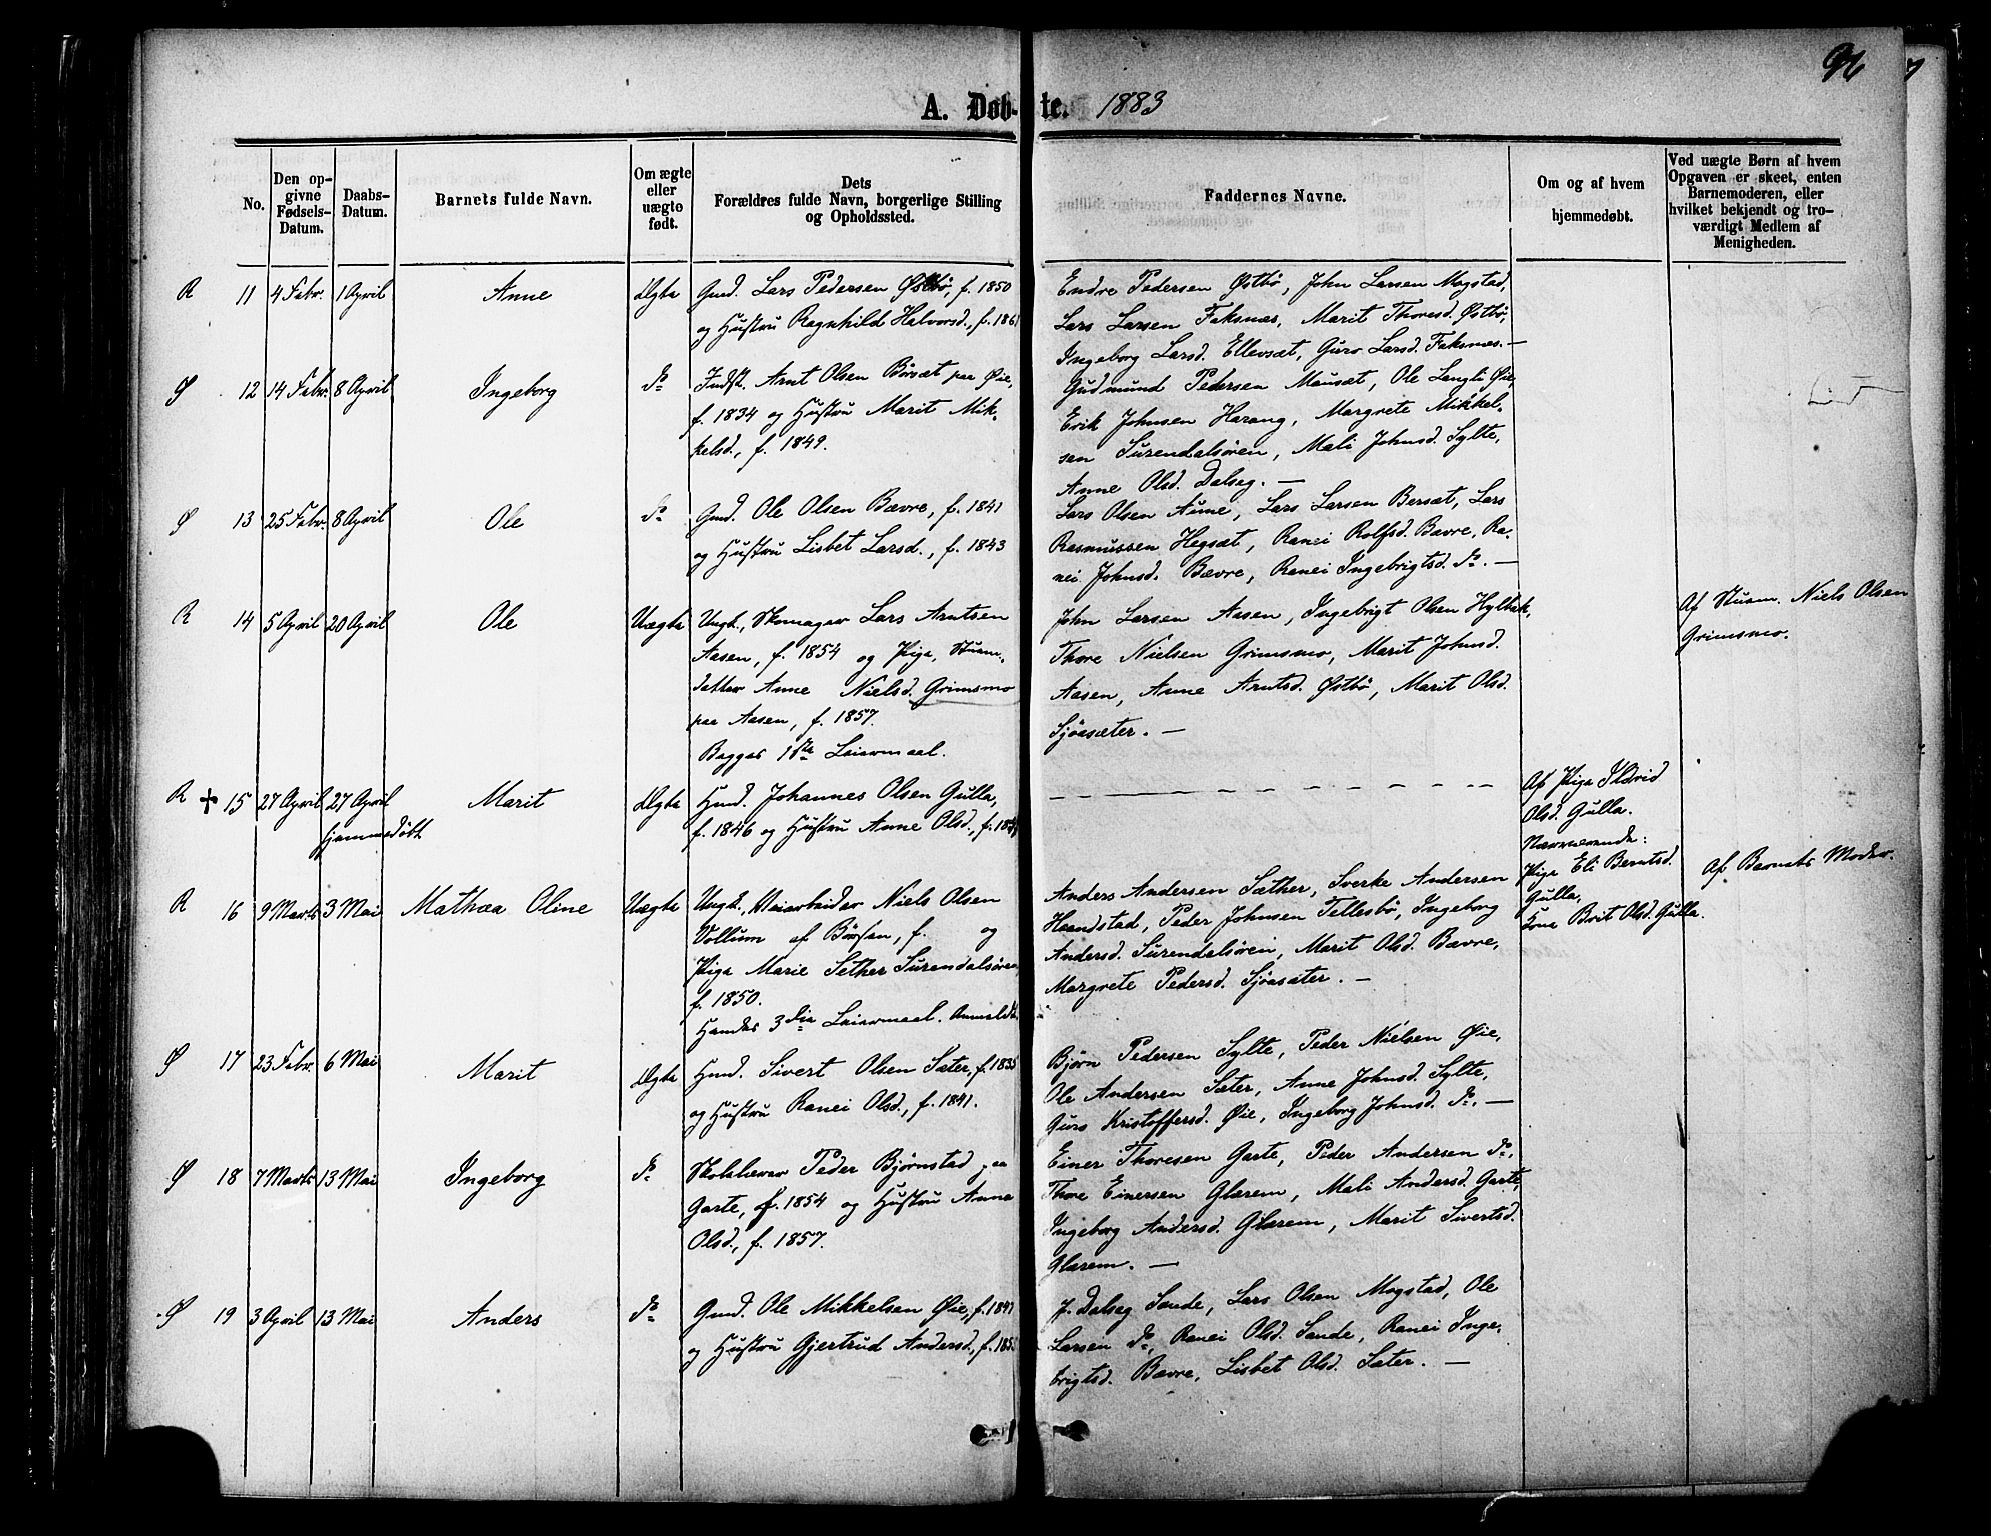 96
A. Døb- te. 1883
No.
Den op-
givne
Fødsels-
Datum.
Daabs-
Datum.
Barnets fulde Navn.
Om ægte
eller
uægte
født.
Dets
Forældres fulde Navn, borgerlige Stilling
og Opholdssted.
Faddernes Navne.
Om og af hvem
hjemmedøbt.
Ved uægte Børn af hvem
Opgaven er skeet, enten
Barnemoderen, eller
hvilket bekjendt og tro-
værdigt Medlem af
Menigheden.
R 11 4 Febr. 1 April Anne Ægte
Gmd. Lars Pedersen Østbø, f. 1850
og Hustru Ragnhild Halvorsd., f. 186
Endre Pedersen Østbø, John Larsen Mogstad,
Lars Larsen Faksnæs, Marit Thoresd. Østbø,
Ingeborg Larsd. Ellevsæt, Guro Larsd. Faksnæs. —
Ø 12 14 Febr. 8 April Ingeborg do
Indst. Arnt Olsen Børsæt paa Øie,
f. 1834 og Hustru Marit Mik-
kelsd., f. 1849.
Gudmund Pedersen Mausæt, Ole Langli Øie,
Erik Johnsen Harang, Margrete Mikkel-
sen Surendalsøren, Mali Johnsd. Sylte,
Anne Olsd. Dalseg. —
Ø 13 25 Febr. 8 April Ole do
Gmd. Ole Olsen Bævre, f. 1841
og Hustru Lisbet Larsd., f. 1843
Lars Olsen Aune, Lars Larsen Bersæt, Lars
Rasmussen Hegsæt, Ranei Rolfsd. Bævre, Ra-
nei Johnsd. Bævre, Ranei Ingebrigtsd. do. —
R 14 5 April 20 April Ole Uægte
Ungk., Skomager Lars Arntsen
Aasen, f. 1854 og Pige, Stuem.-
datter Anne Nielsd. Grimsmo
paa Aasen, f. 1857.
Begges 1ste Leiermaal.
John Larsen Aasen, Ingebrigt Olsen Hylbak,
Thore Nielsen Grimsmo, Marit Johnsd.
Aasen, Anne Arntsd. Østbø, Marit Olsd.
Sjøasæter. —
Af Stuem. Niels Olsen
Grimsmo.
R + 15 27 April 27 April
hjemmedøbt
Marit Ægte
Gmd. Johannes Olsen Gulla,
f. 1846 og Hustru Anne Olsd., f. 18
Af Pige Ildrid
Olsd. Gulla.
Nærværende:
Pige Eli Berntsd.
Gulla,
Kone Brit Olsd. Gulla.
R 16 9 Marts 3 Mai Mathea Oline Uægte
Ungk., Veiarbeider Niels Olsen
Vollum af Børsen, f. og
Pige Marie Sether Surendalsøren
f. 1850.
Hendes 3die Leiermaal. Anmeldt.
Anders Andersen Sæther, Sverke Andersen
Haandstad, Peder Johnsen Tellesbø, Ingeborg
Andersd. Surendalsøren, Marit Olsd. Bævre,
Margrete Pedersd. Sjøasæter. —
Af Barnets Moder.
Ø 17 23 Febr. 6 Mai Marit Ægte
Gmd. Sivert Olsen Sæter, f. 1835
og Hustru Ranei Olsd., f. 1841.
Bjørn Pedersen Sylte, Peder Nielsen Øie,
Ole Andersen Sæter, Anne Johnsd. Sylte,
Guro Kristoffersd. Øie, Ingeborg Johnsd. do. —
Ø 18 7 Marts 13 Mai Ingeborg do
Skolelærer Peder Bjørnstad paa
Garte, f. 1854 og Hustru Anne
Olsd., f. 1857.
Einer Thoresen Garte, Peder Andersen do,
Thore Einersen Glærem, Mali Andersd. Garte,
Ingeborg Andersd. Glærem, Marit Sivertsd.
Glærem. —
Ø 19 3 April 13 Mai Anders do
Gmd. Ole Mikkelsen Øie, f. 1847
og Hustru Gjertrud Andersd., f. 185
J. Dalseg Sande, Lars Olsen Mogstad, Ole
Larsen do, Ranei Olsd. Sande, Ranei Inge-
brigtsd. Bævre, Lisbet Olsd. Sæter. —